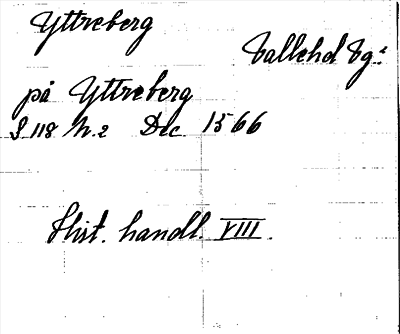 Yttreberg
Vallehd Vg:
på Yttreberg
S 118 N. 2 Dec. 1566
Hist. handl. VIII.